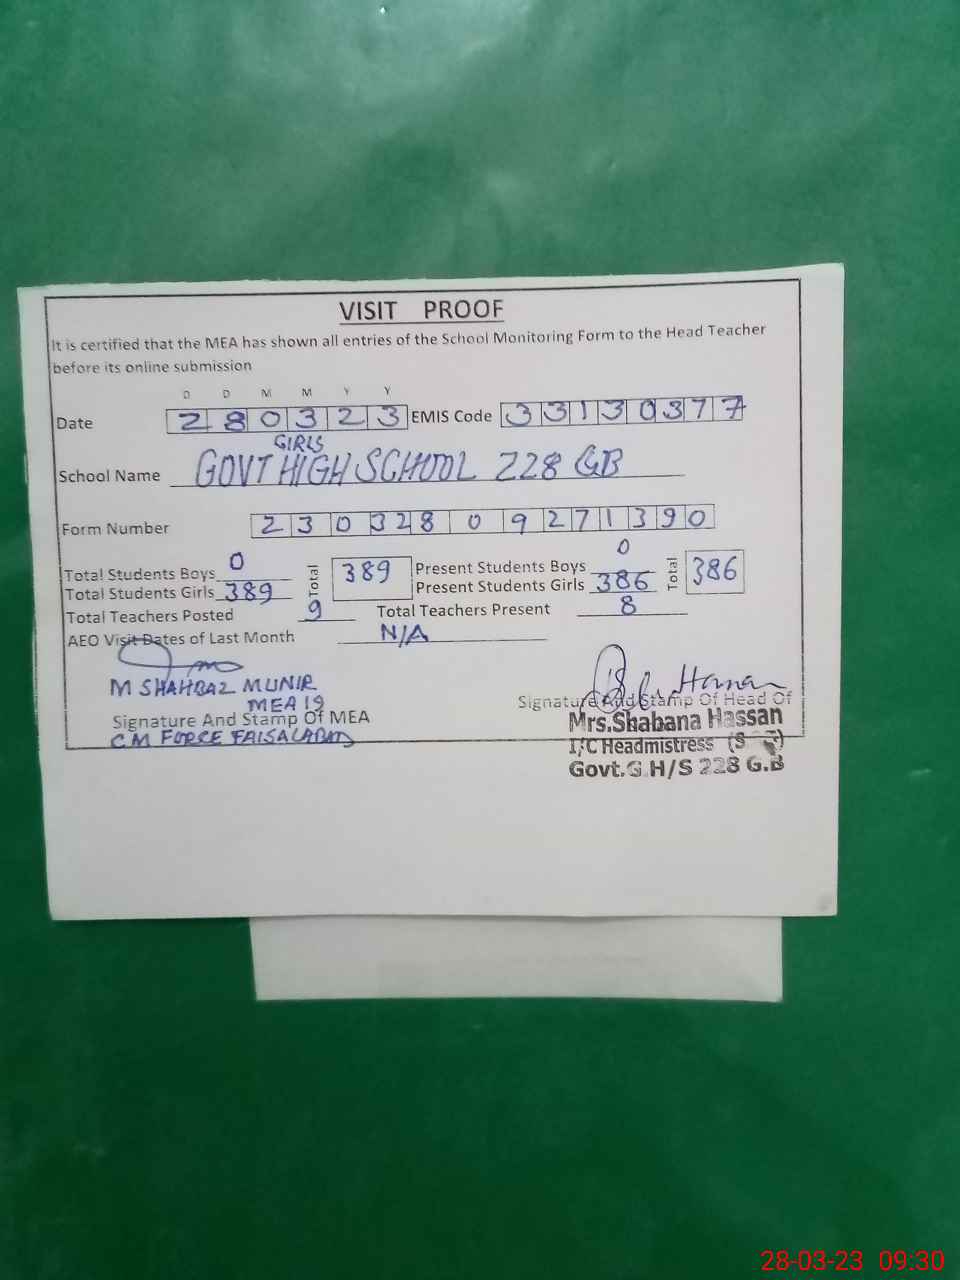 VISIT PROOF
It is certified that the MEA has shown all entries of the School Monitoring Form to the Head Teacher
before its online submission
D D M M Y Y
Date 280323 EMIS Code 33130377
GIRLS
School Name GOVT HIGH SCHOOL 228 GB
Form Number 230328 0 9271390
Total Students Boys 0 Total 389 Present Students Boys 0 Total 386
Total Students Girls 389 Present Students Girls 386
Total Teachers Posted 9 Total Teachers Present 8
AEO Visit Dates of Last Month N/A
M SHAHBAZ MUNIR
MEA 19
Signature And Stamp Of MEA
CM FORCE FAISALABAD
Hassan
Signature And Stamp Of Head Of
Mrs.Shabana Hassan
I/C Headmistress (S
Govt.G.H/S 228 G.B
28-03-23 09:30